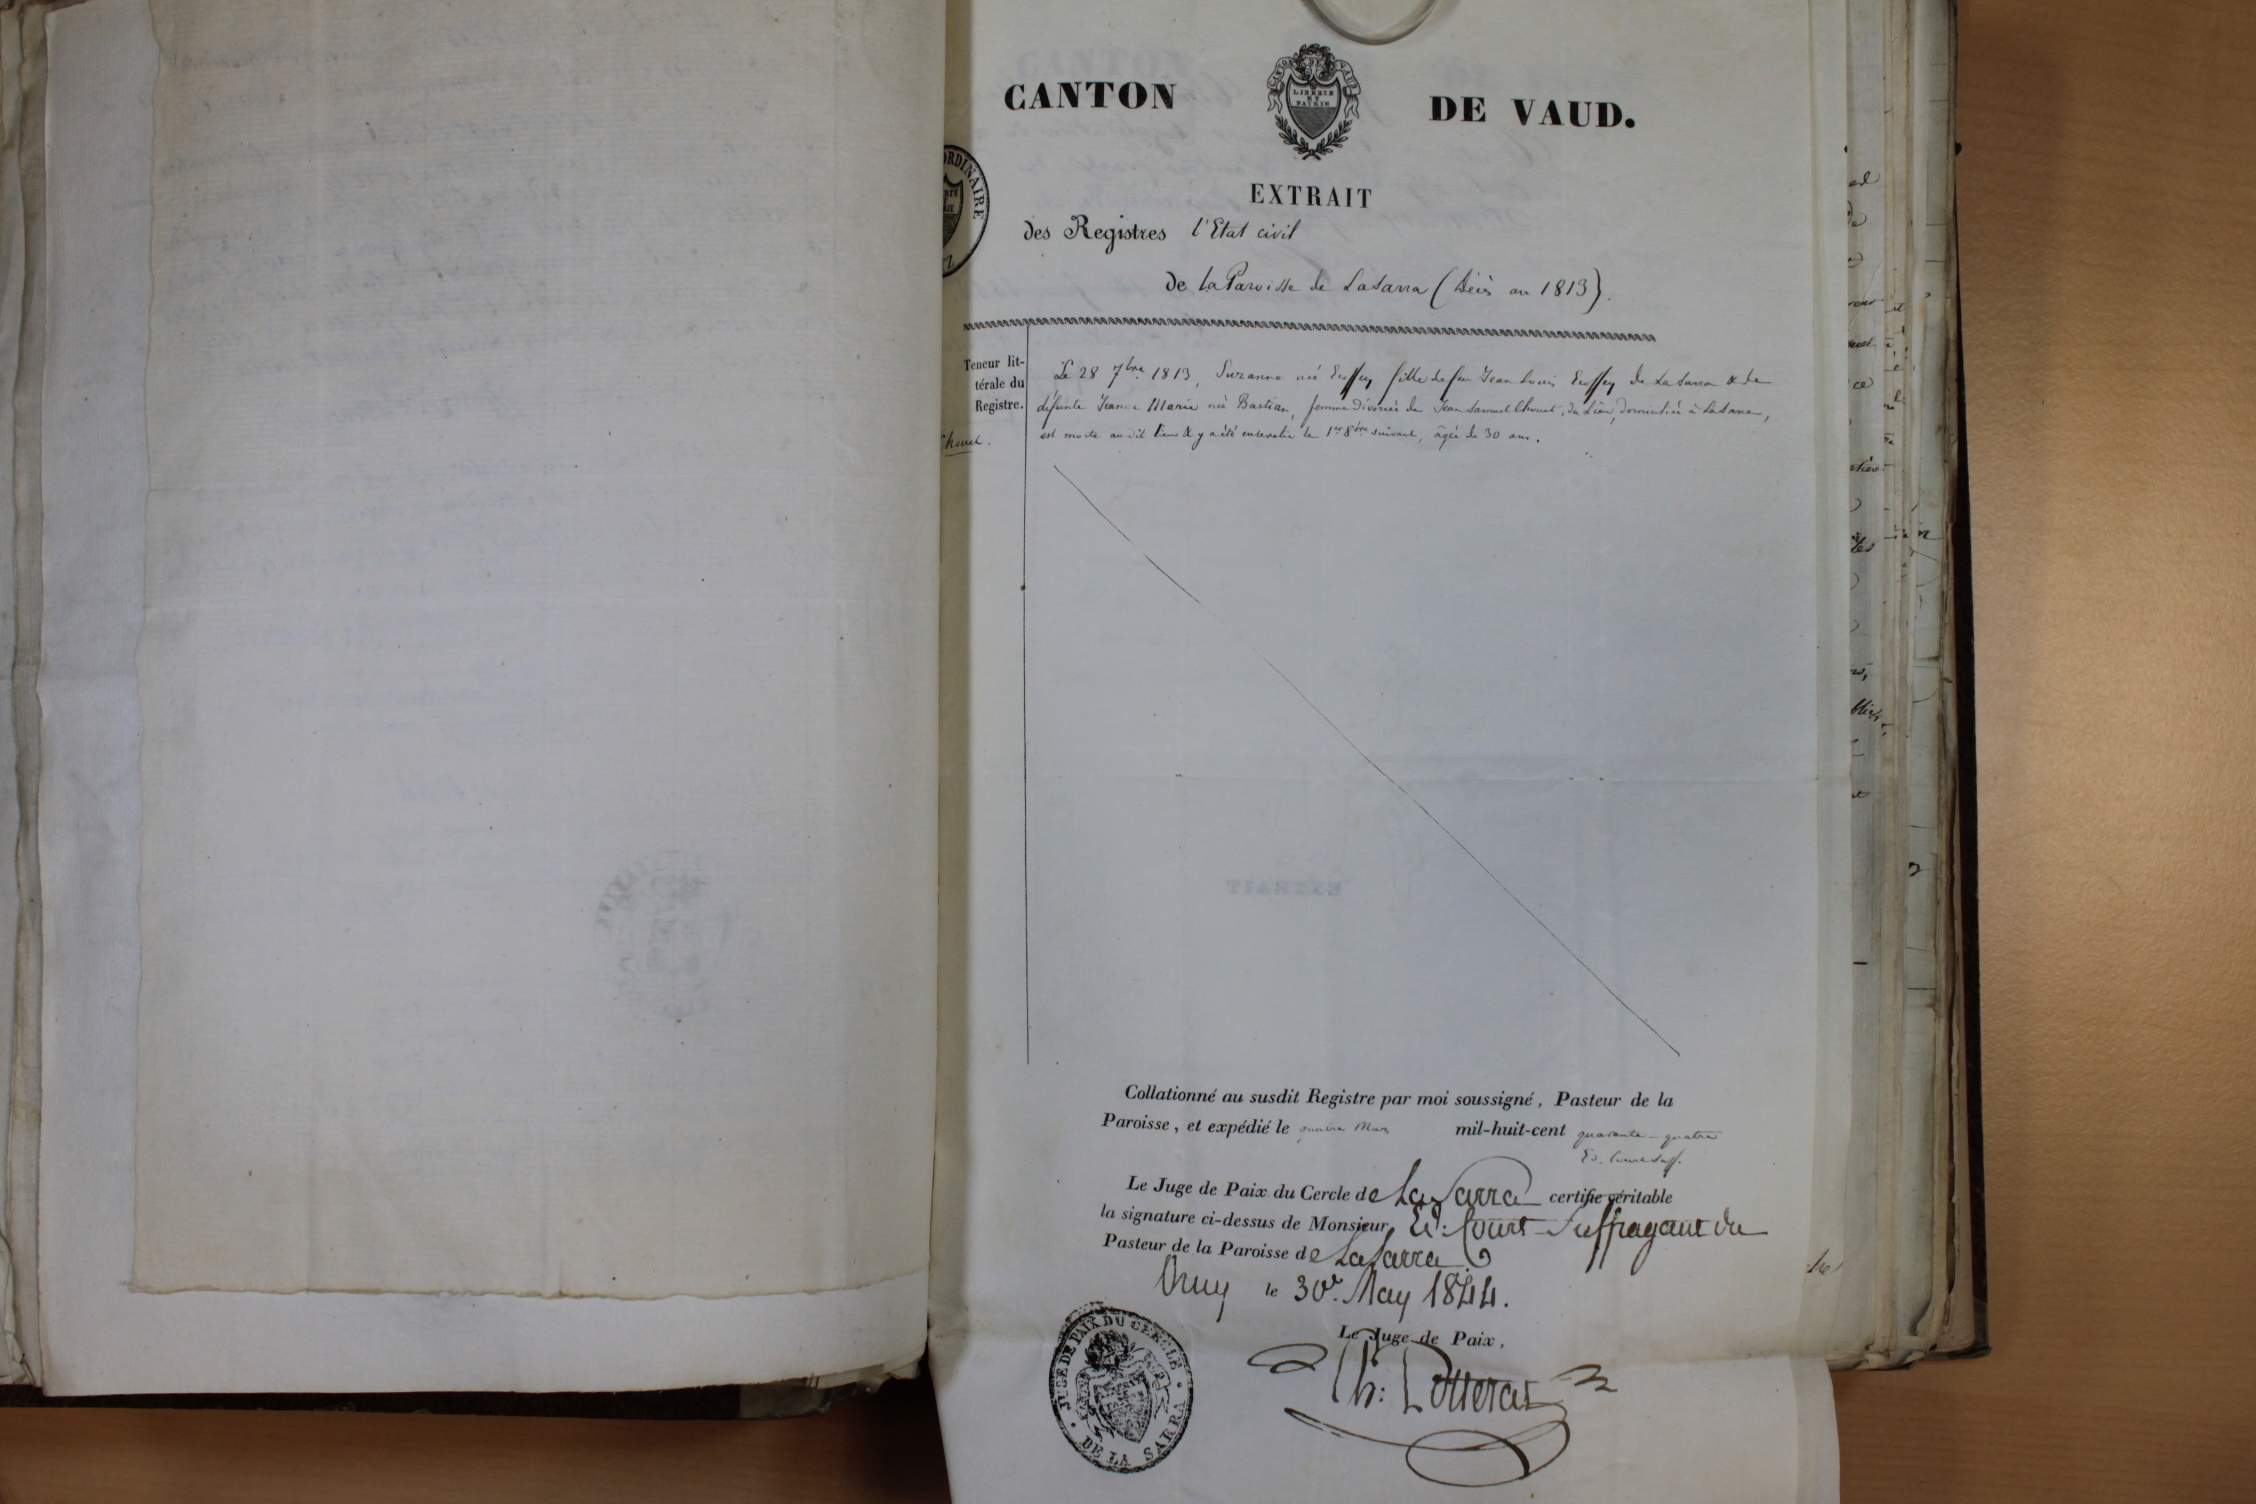 CANTON DE VAUD.
CANTON DE VAUD
LIBERTÉ
ET
PATRIE
ORDINAIRE
EXTRAIT
des Registres l'Etat civil
de La Paroisse de Lasarra (Décès an 1813).
Teneur lit-
térale du
Registre.
Le 28 7bre 1813, Suzanne née fille de feu Jean Louis de La Sarra & de
défunte Jeanne Marie née Bastian, femme divorcée de Jean Samuel Chouet, du Lieu, domiciliée à Lasarra,
est morte au dit lieu & y a été enterrée le 1er 8bre suivant, âgée de 30 ans.
Collationné au susdit Registre par moi soussigné, Pasteur de la
Paroisse, et expédié le quatre mil-huit-cent quarante-quatre
Ed. Court suff.
Le Juge de Paix du Cercle de La Sarra certifie véritable
la signature ci-dessus de Monsieur Ed: Court Suffragant du
Pasteur de la Paroisse de LaSarra
Orny le 30e. May 1844.
Le Juge de Paix,
Ch: Potterat
JUGE DE PAIX DU CERCLE
DE LA SARRA